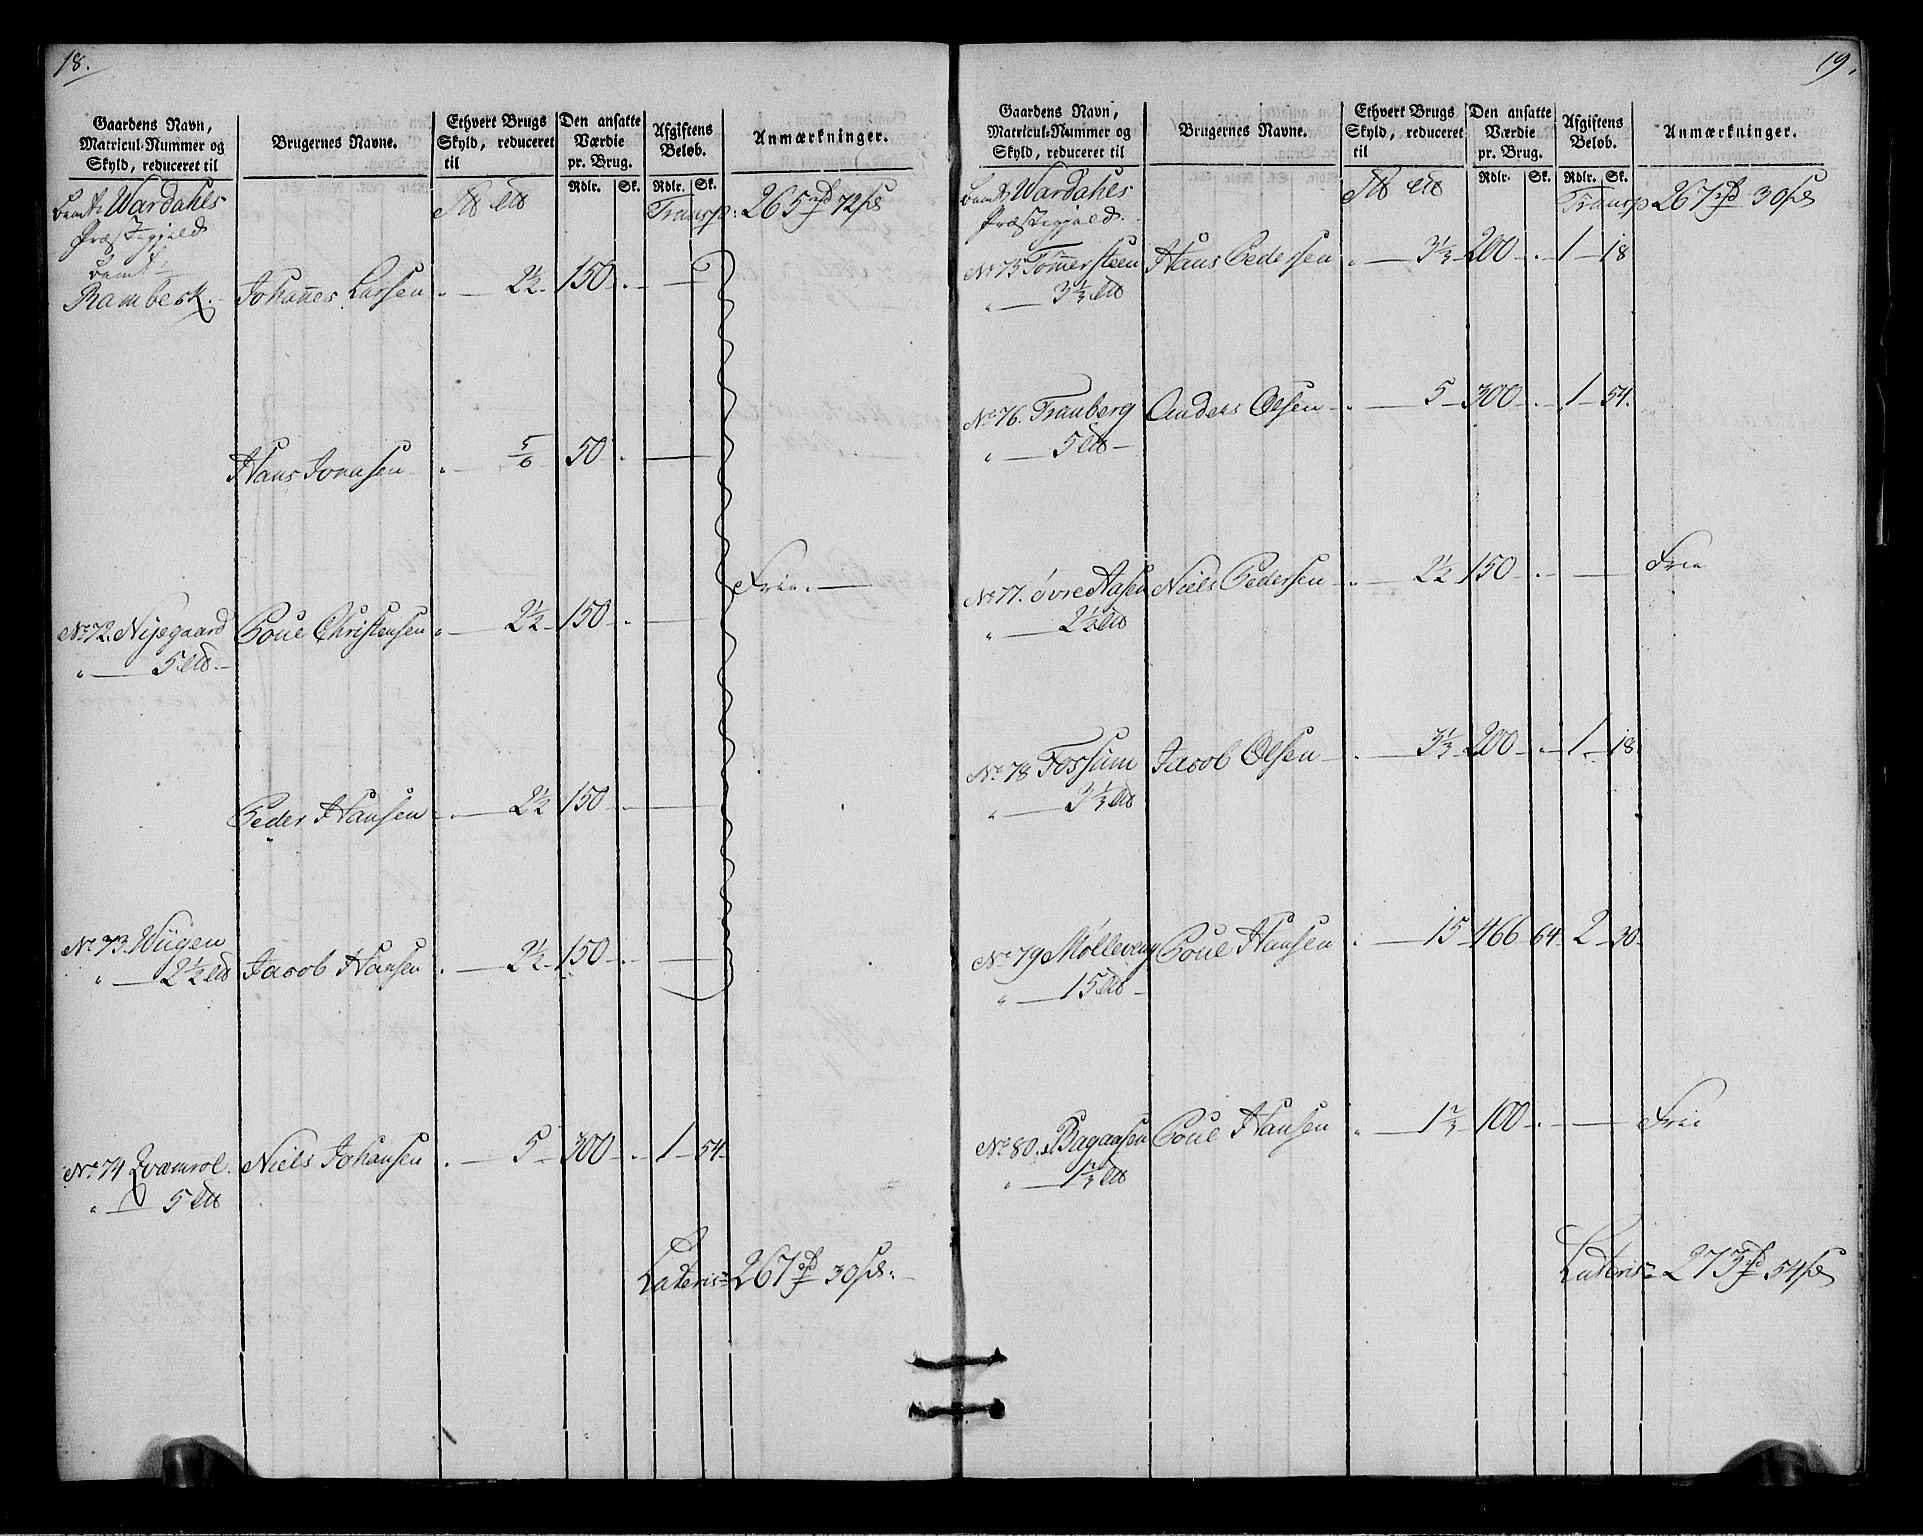 18.
Gaardens Navn, Matricul-Nummer og Skyld, reduceret til | Brugernes Navne. | Ethvert Brugs Skyld, reduceret til | Den ansatte Værdie pr. Brug. | Afgiftens Beløb. | Anmærkninger.
Rdlr. | Sk. | Rdlr. | Sk.
Wardahls | Transp: 265 rd 72 sk
Præstegjeld
Rambesk. | Johannes Larsen | 2½ | 150
Hans Joensen | 5/6 | 50
Frie.
No 72. Nijegaard | Poul Christensen | 2½ | 150
5 lb
Peder Hansen | 2½ | 150
No 73. Wiigen
2½ lb | Jacob Hansen | 2½ | 150
No 74 Qvamrol. | Niels Johansen | 5 | 300 | 1 | 54
5 lb
Lateris 267 rd 30 sk.
19.
Gaardens Navn, Matricul-Nummer og Skyld, reduceret til | Brugernes Navne. | Ethvert Brugs Skyld, reduceret til | Den ansatte Værdie pr. Brug. | Afgiftens Beløb. | Anmærkninger.
Rdlr. | Sk. | Rdlr. | Sk.
Wardahls | Transp 267 rd 30 sk
Præstegjeld.
No 75 Tømersteen | Hans Pedersen | 3⅓ | 200 | 1 | 18
3⅓ lb
No 76. Tranberg | Anders Olsen | 5 | 300 | 1 | 54.
5 lb
No 77. øvre Aasen | Niels Pedersen | 2½ | 150 | Frie
2½ lb
No 78 Fossum | Jacob Olsen | 3⅓ | 200 | 1 | 18
3⅓ lb
No 79 Mølleveng | Poul Hansen | 15 | 466 | 64 | 2 | 30
15 lb
No 80. Bagaasen | Poul Hansen | 1⅔ | 100 | Frie
1⅔ lb
Lateris 273 rd 54 sk